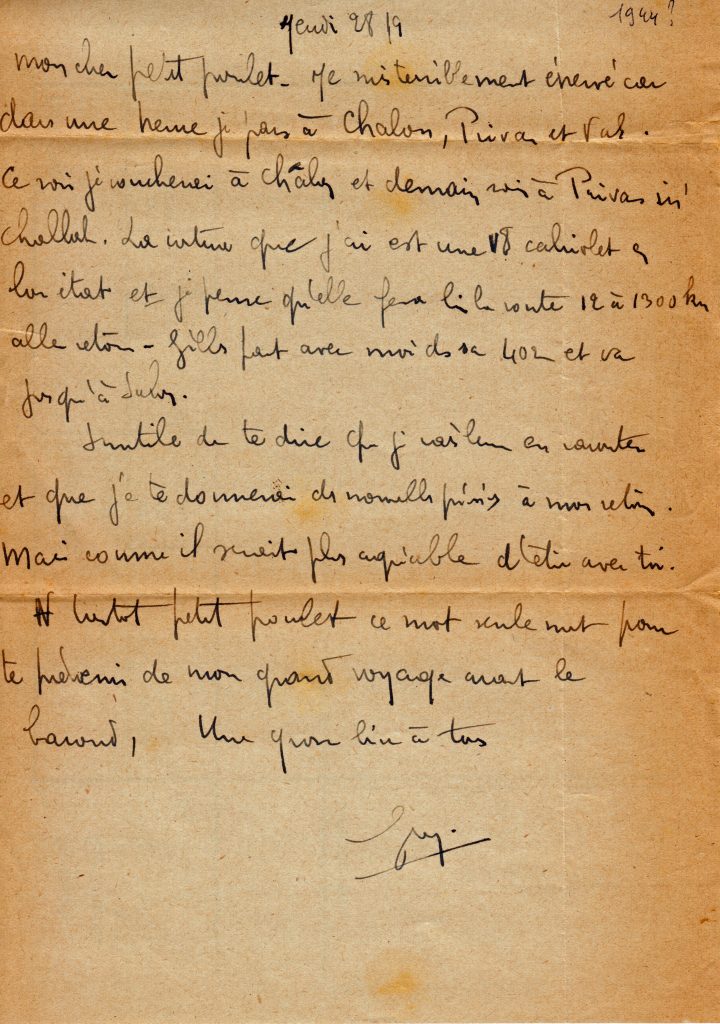 Jeudi 28/9 1944?
Mon cher petit poulet - Je suis terriblement énervé car
dans une heure je pars à Chalon, Privas et Vals.
Ce soir je coucherai à Châlon et demain soir à Privas in'
challah. La voiture que j'ai est une V8 cabriolet en
bon état et je pense qu'elle fera bien la route 12 à 1300 km
aller retour - Gills part avec moi ds sa 402 et va
jusqu'à
Inutile de te dire que je vais en raconter
et que je te donnerai ds nouvelles à mon retour.
Mais comme il serait plus agréable d'être avec toi.
A bientot petit poulet ce mot seulement pour
te prévenir de mon grand voyage avant le
baroud, Une grosse bise à tous
Guy.